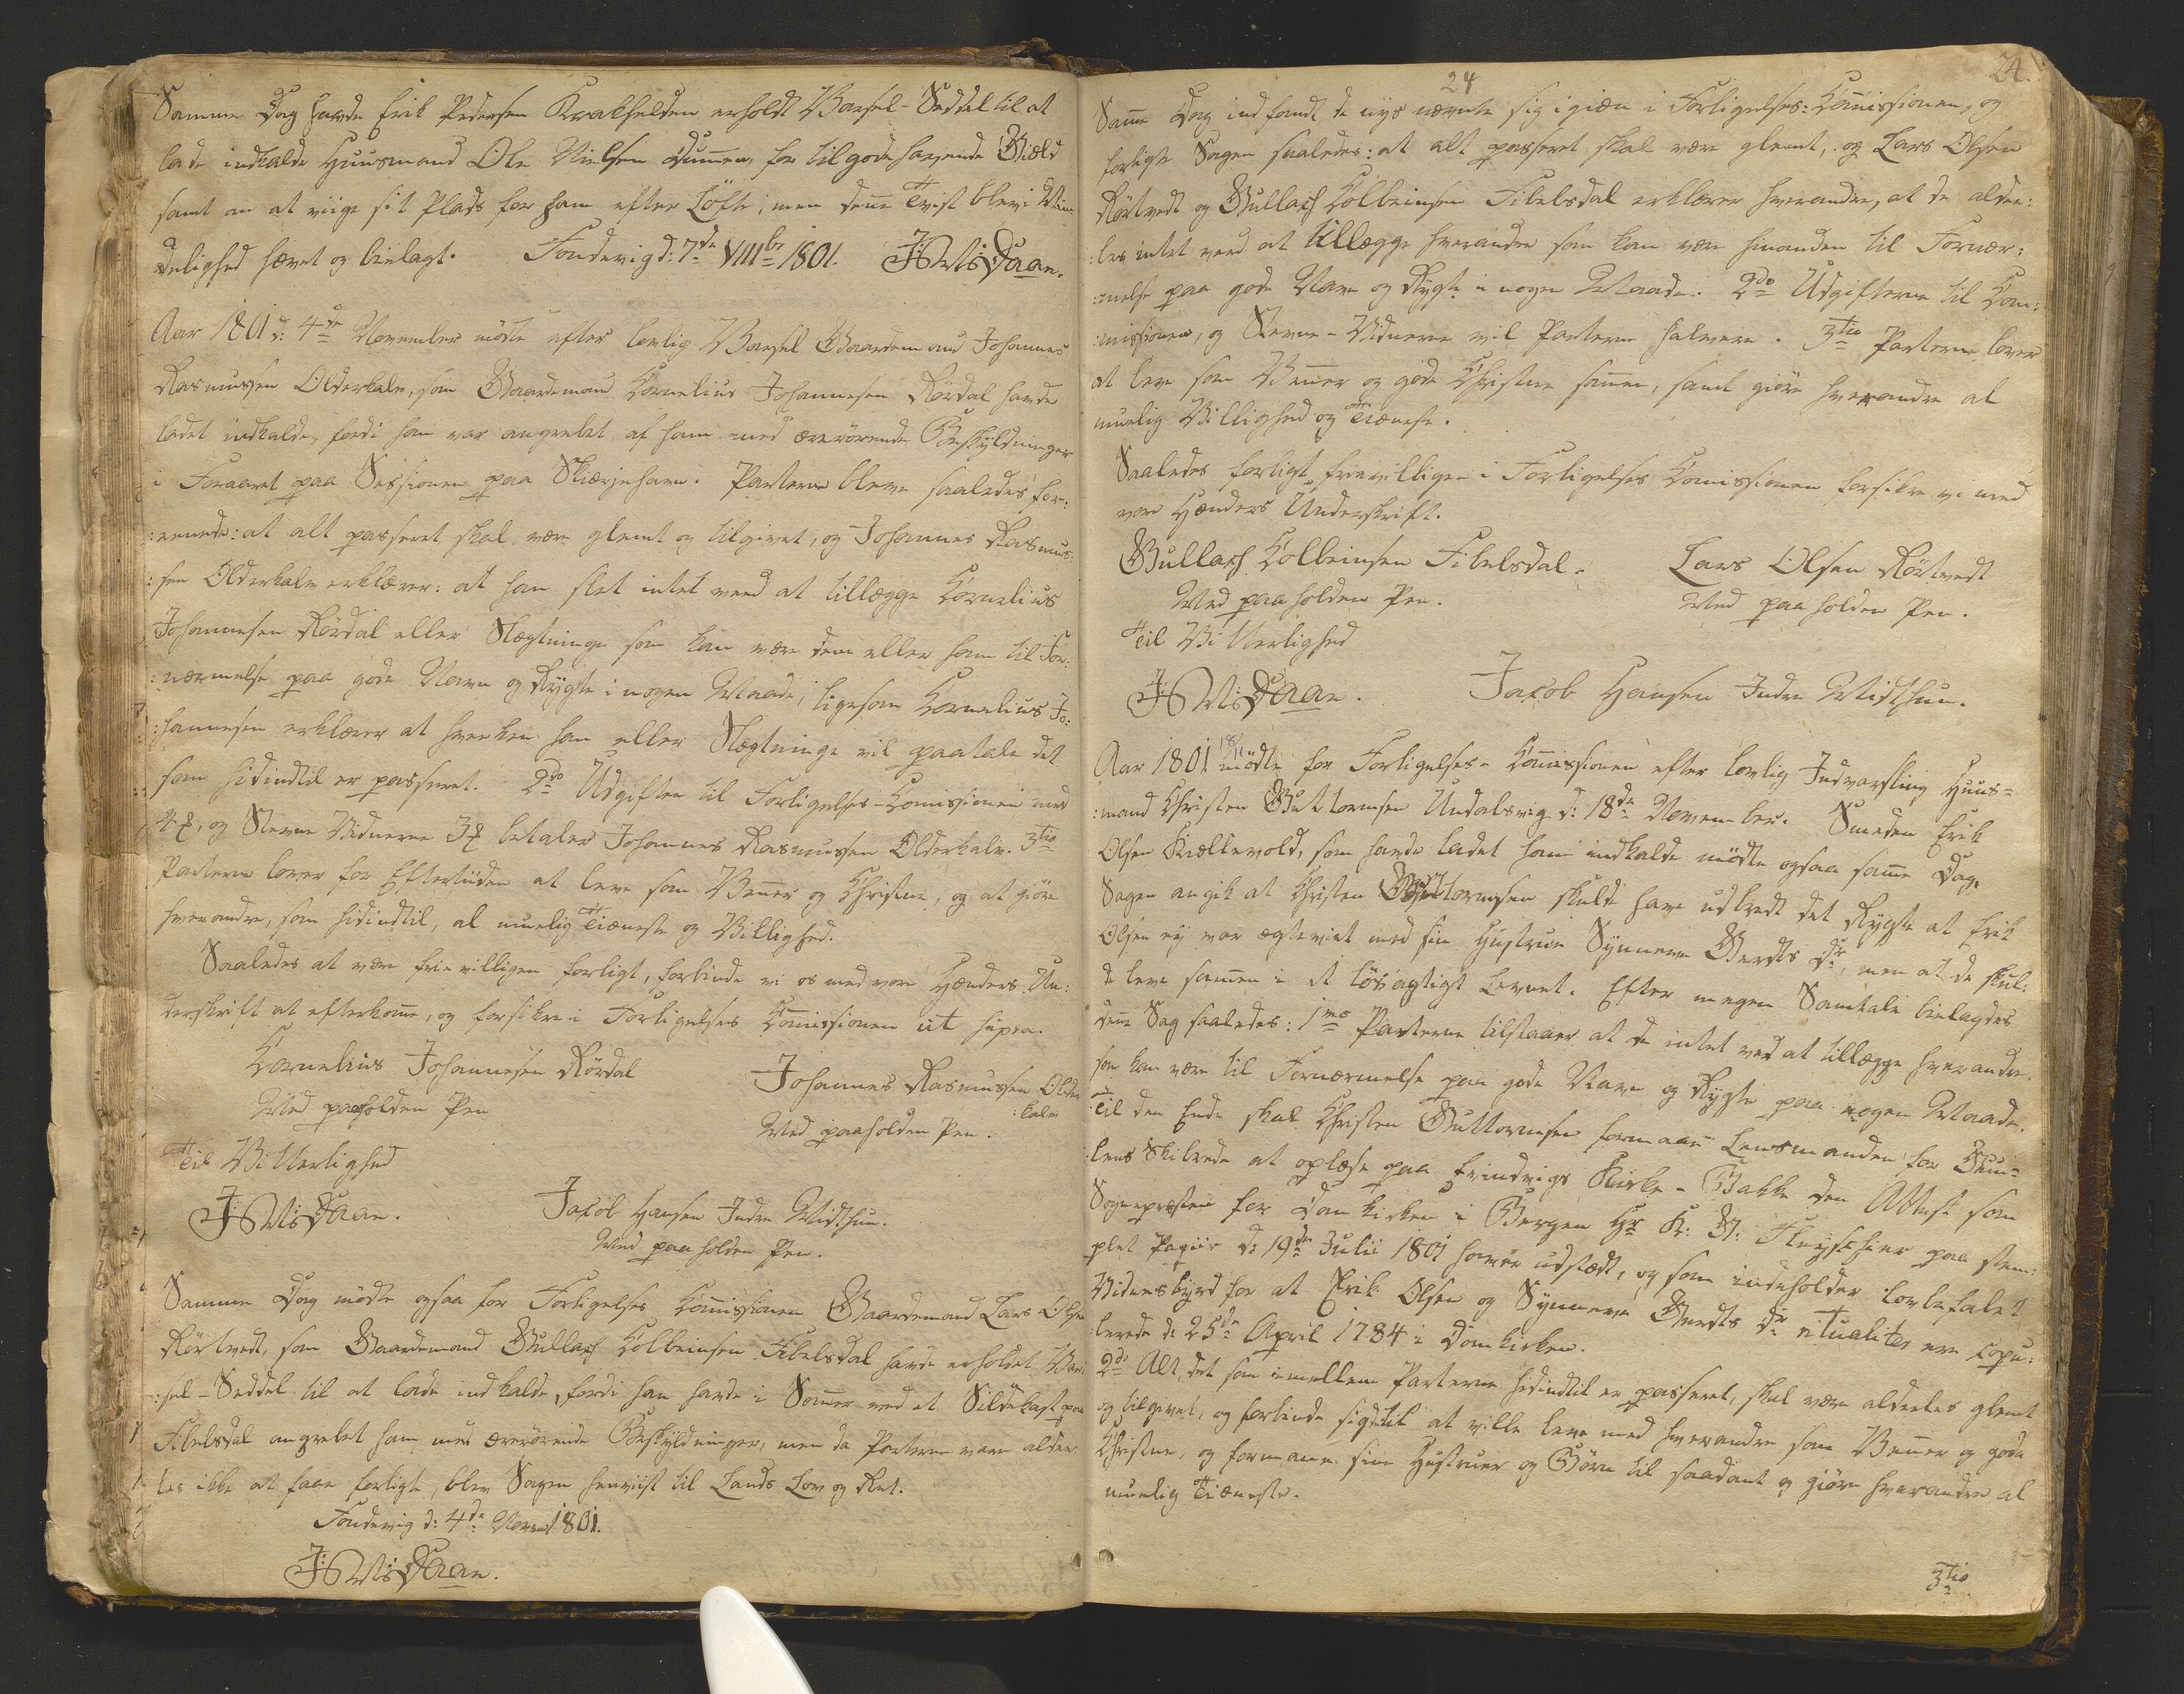 Samme Dag havde Erik Pedersen Krakhelden erholdt Varsel-Seddel til at
lade indkalde Huusmand Ole Nielsen Dumen, for tilgodehavende Giæld
samt om at viige sit Plads for ham efter Löfte; men denne Tvist blev i Min-
delighed hævet og bielagt. Sondevig d: 7de VIIIbr 1801. JSMsDaae.
Aar 1801 d: 4de November mödte efter lovlig Varsel Gaardemand Johannes
Rasmussen Olderkalv, som Gaardemand Kornelius Johannesen Rördal havde
ladet indkalde, fordi han var angrebet af ham med ærerörende Beskyldninger
i Foraaret paa Sessionen paa Skierjehavn. Parterne bleve saaledes for-
:eenede: at alt passeret skal være glemt og tilgivet, og Johannes Rasmus-
:sen Olderkalv erklærer: at han slet intet veed at tillægge Kornelius
Johannesen Rördal eller Slægtninge som kan være dem eller ham til For-
:nærmelse paa gode Navn og Rygte i nogen Maade; ligesom Kornelius Jo-
:hannesen erklærer at hverken han eller Slægtninge vil paatale det
som hidindtil er passeret. 2do Udgiften til Forligelses-Comissionen med
4 ꝼ, og Stevne Vidnerne 3 ꝼ betaler Johannes Rasmussen Olderkalv. 3tio
Parterne lover for Eftertiiden at leve som Venner og Christne, og at giöre
hverandre, som hidindtil, al muelig Tieneste og Billighed.
Saaledes at være frievilligen forligt, forbinde vi os med vore Hænders Un-
derskrift at efterkomme, og forsikre i Forligelses Commissionen ut supra.
Kornelius Johannesen Rördal Johannes Rasmussen Older
:kalv
Med paaholden Pen Med paaholden Pen.
Til Vitterlighed
JSMsDaae. Jakob Hansen Indre Midthun.
Med paaholden Pen.
Samme Dag mödte ogsaa for Forligelses Commissionen Gaardemand Lars Olsen
Rörtvedt, som Gaardemand Gullach Kolbeinsen Fibelsdal havde erholdet Var-
:sel-Seddel til at lade indkalde, fordi han havde i Sommer ved et Sildekast paa
Fibelsdal angrebet ham med ærerörende Beskyldninger, men da Parterne vare aldee-
les ikke at faae forligte, blev Sagen henviist til Lands Lov og Ret.
Sondevig d: 4de Novem 1801.
JSMsDaae.
24
24.
Samme Dag indfandt de nys nævnte sig igien i Forligelses-Commissionen, og
forligte Sagen saaledes: at alt passeret skal være glemt, og Lars Olsen
Rörtvedt og Gullach Kolbeinsen Fibelsdal erklærer hverandre, at de aldee-
:les intet veed at tillægge hverandre som kan være hinanden til Fornær-
:melse paa gode Navn og Rygte i nogen Maade. 2do Udgifterne til Com-
:missionen, og Stevne-Vidnerne vil Parterne halvere. 3tio Parterne lover
at leve som Venner og gode Christne sammen, samt giöre hverandre al
muelig Billighed og Tieneste.
Saaledes forligt frievilligen i Forligelses Commissionen forsikre vi med
vore Hænders Underskrift.
Gullach Kolbeinsen Fibelsdal. Lars Olsen Rörtvedt
Med paaholden Pen. Med paaholden Pen.
Til Vitterlighed
JSMsDaae. Jakob Hansen Indre Midthun.
Aar 1801 18/11 mödte for Forligelses-Commissionen efter lovlig Indvarsling Huus-
:mand Christen Guttormsen Undalsvig d: 18de November. Smeden Erik
Olsen Kiellevold, som havde ladet ham indkalde mödte ogsaa samme Dag.
Sagen angik at Christen Guttormsen skulde have udbredt det Rygte at Erik
Olsen ej var ægteviet med sin Hustrue Synneve Gerdts Dr, men at de skul-
de leve sammen i et lösagtigt Levnet. Efter megen Samtale bielagdes
denne Sag saaledes: 1mo Parterne tilstaaer at de intet ved at tillægge hverandre
som kan være til Fornærmelse paa gode Navn og Rygte paa nogen Maade.
Til den Ende skal Christen Guttormsen formaae Lensmanden for Guu-
:lens Skibrede at oplæse paa Evindvigs Kirke-Bakke den Attest som
Sognepræsten for Domkirken i Bergen Hr K: G: Fleyscher paa stem-
plet Papiir d: 19de Julii 1801 haver udstædt, og som indeholder lovbefalet
Vidnesbyrd for at Erik Olsen og Synneve Gerdts Dr ritualiter ere copu-
:lerede d: 25de April 1784 i Domkirken.
2do Alt det som imellem Parterne hidindtil er passeret, skal være aldeeles glemt
og tilgivet, og forbinde sig til at ville leve med hverandre som Venner og gode
Christne, og formane sine Hustruer og Börn til saadant og giöre hverandre al
muelig Tieneste.
3tio